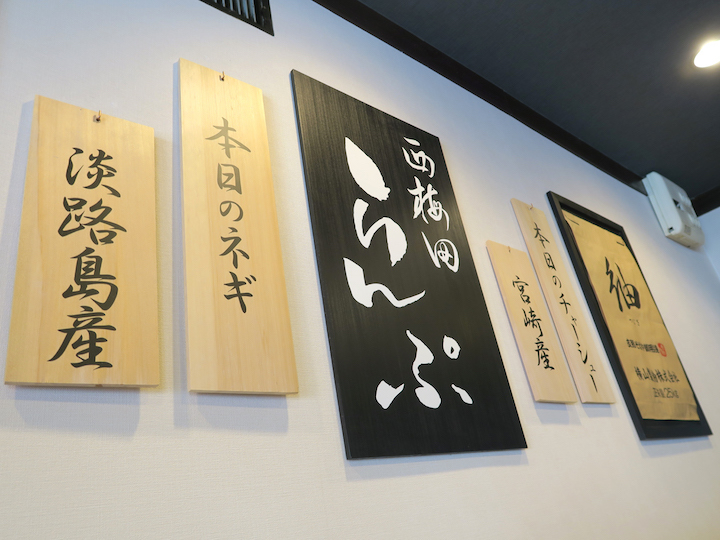 本日のネギ
淡路島産
西梅田
らんぷ
本日のチャーシュー
宮崎産